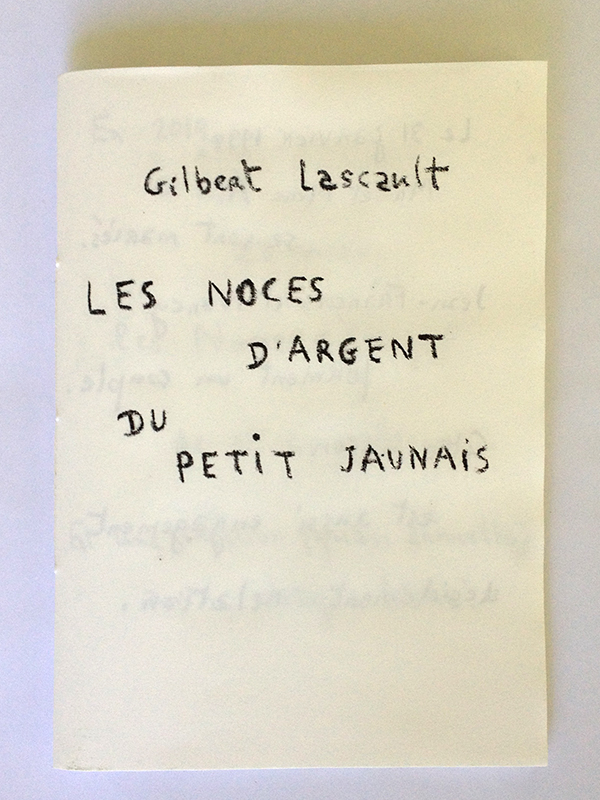 Gilbert Lascault
LES NOCES
D'ARGENT
DU
PETIT JAUNAIS